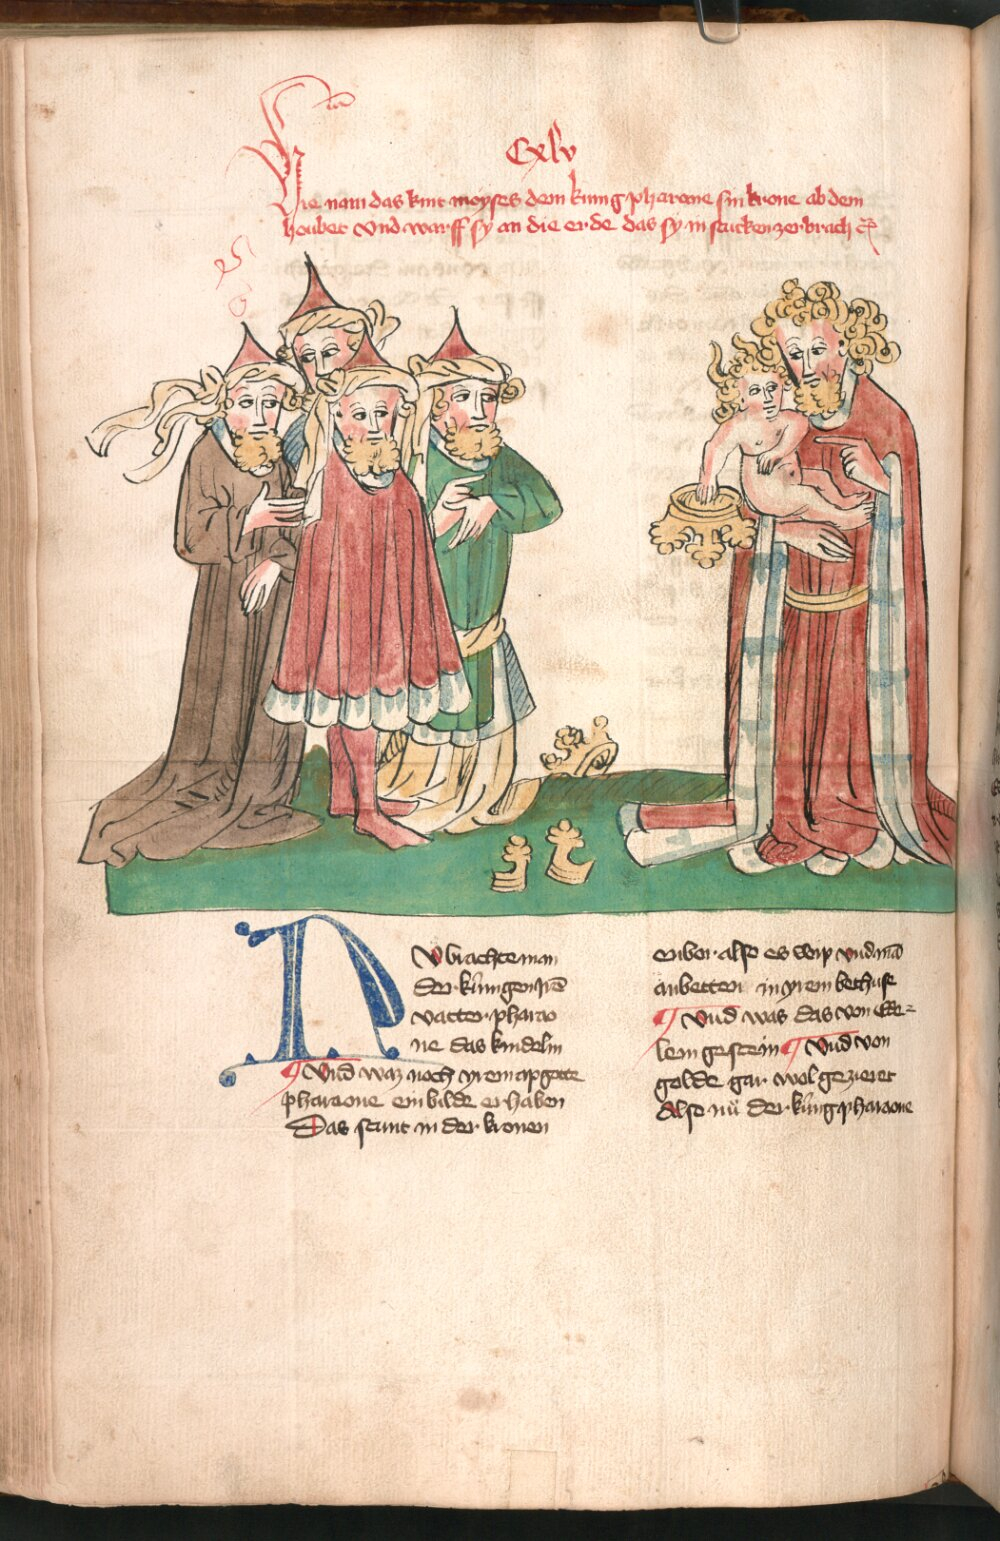 Cxlv
Hie nam das kint moyses dem kúnig pharaone sin krone ab dem
houbet vnd warff sy an die erde das sy in stucken zerbrach
NV brachte man
der kúnigen Irē
vatter pharao
ne das kindelin
Vnd waz noch yrem apgotte
pharaone ein bilde erhaben
Das stunt in der kronen
enbor also es wip vnd mā
anbetten in yrem bethuse
Vnd was das von Ede-
lem gestein Vnd von
golde gar wol gezieret
Also nů der kúnig pharaone